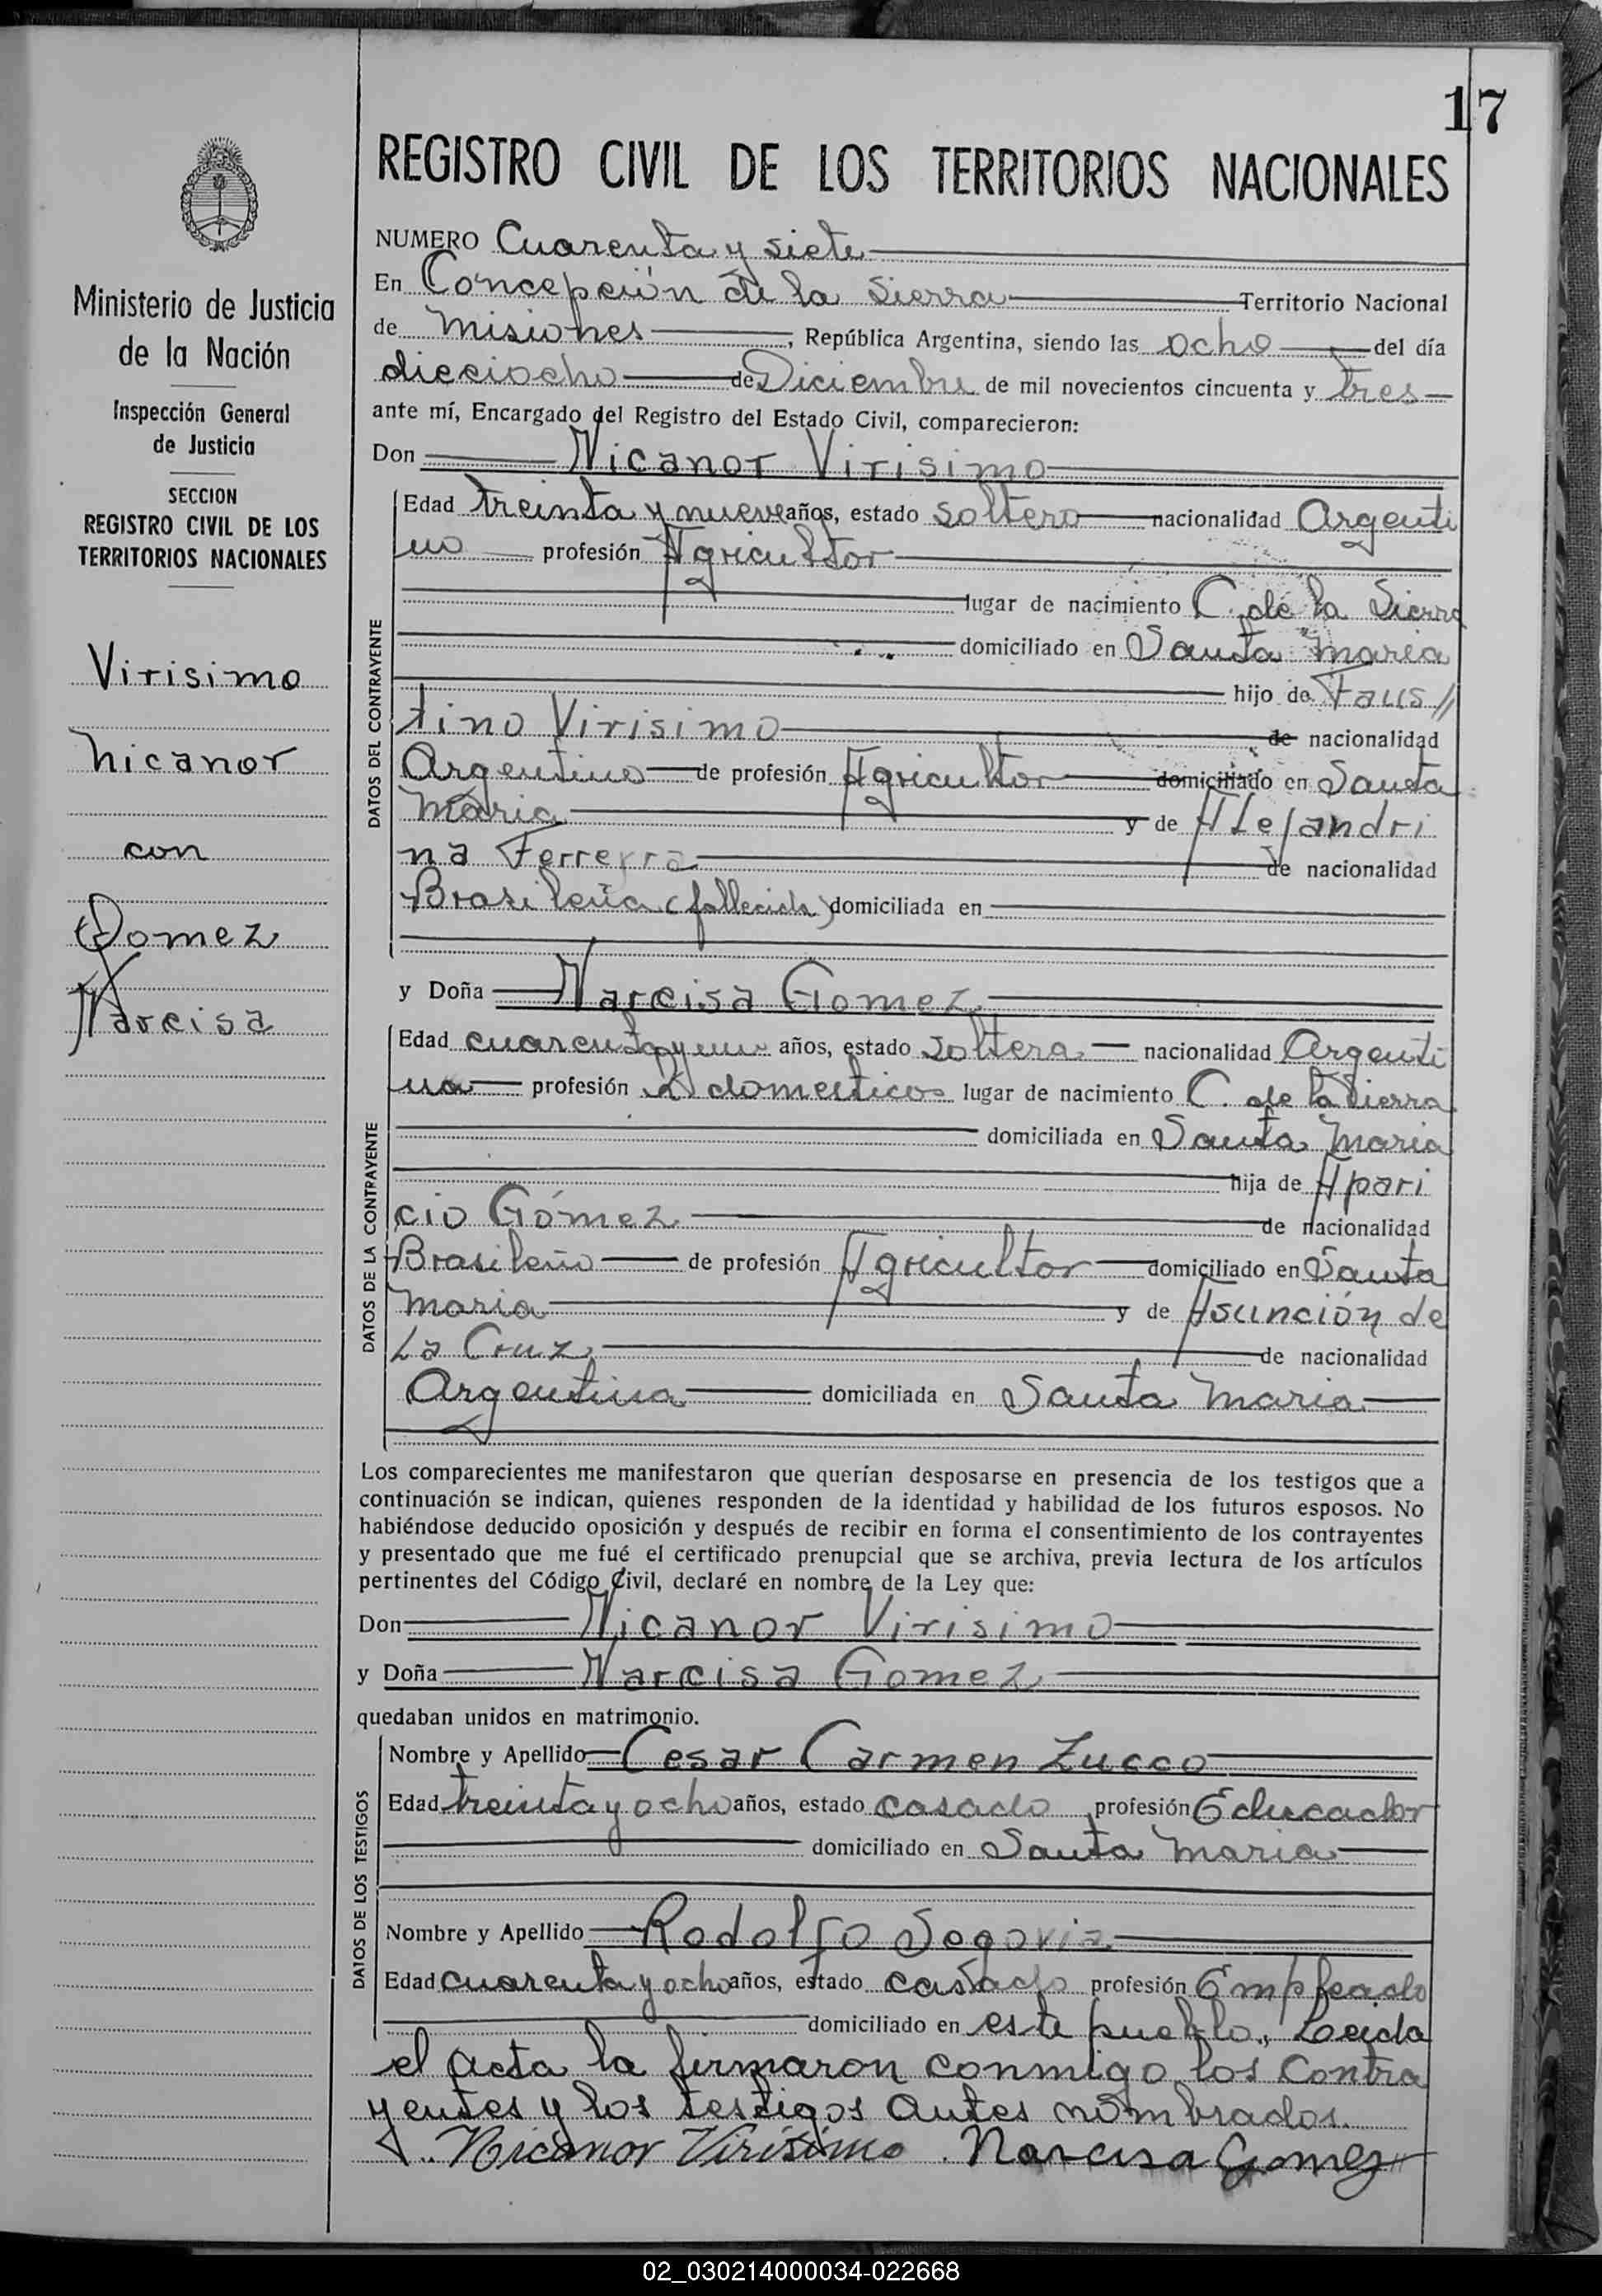 17
REGISTRO CIVIL DE LOS TERRITORIOS NACIONALES
Ministerio de Justicia
de la Nación
Inspección General
de Justicia
SECCION
REGISTRO CIVIL DE LOS
TERRITORIOS NACIONALES
Virisimo
Nicanor
con
Gomez
Narcisa
NUMERO Cuarenta y siete
En Concepción de la Sierra Territorio Nacional
de Misiones, República Argentina, siendo las ocho del día
dieciocho de Diciembre de mil novecientos cincuenta y tres
ante mí, Encargado del Registro del Estado Civil, comparecieron:
Don Nicanor Virisimo
DATOS DEL CONTRAYENTE
Edad treinta y nueve años, estado soltero nacionalidad Argenti
no profesión Agricultor
lugar de nacimiento C. de la Sierra
domiciliado en Santa Maria
hijo de Faus//
tino Virisimo de nacionalidad
Argentino de profesión Agricultor domiciliado en Santa
Maria y de Alejandri
na Ferreyra de nacionalidad
Brasileña (fallecida) domiciliada en
y Doña Narcisa Gomez
DATOS DE LA CONTRAYENTE
Edad cuarenta y un años, estado soltera nacionalidad Argenti
na profesión domesticos lugar de nacimiento C. de la Sierra
domiciliada en Santa Maria
hija de Apari
cio Gómez de nacionalidad
Brasileño de profesión Agricultor domiciliado en Santa
Maria y de Asunción de
La Cruz de nacionalidad
Argentina domiciliada en Santa Maria
Los comparecientes me manifestaron que querían desposarse en presencia de los testigos que a
continuación se indican, quienes responden de la identidad y habilidad de los futuros esposos. No
habiéndose deducido oposición y después de recibir en forma el consentimiento de los contrayentes
y presentado que me fué el certificado prenupcial que se archiva, previa lectura de los artículos
pertinentes del Código Civil, declaré en nombre de la Ley que:
Don Nicanor Virisimo
y Doña Narcisa Gomez
quedaban unidos en matrimonio.
DATOS DE LOS TESTIGOS
Nombre y Apellido Cesar Carmen Zucco
Edad treinta y ocho años, estado casado profesión Educador
domiciliado en Santa Maria
Nombre y Apellido Rodolfo Segovia
Edad cuarenta y ocho años, estado casado profesión Empleado
domiciliado en este pueblo. Leida
el acta la firmaron conmigo los contra
yentes y los testigos antes nombrados.
Nicanor Virísimo Narcisa Gomez
02_030214000034-022668